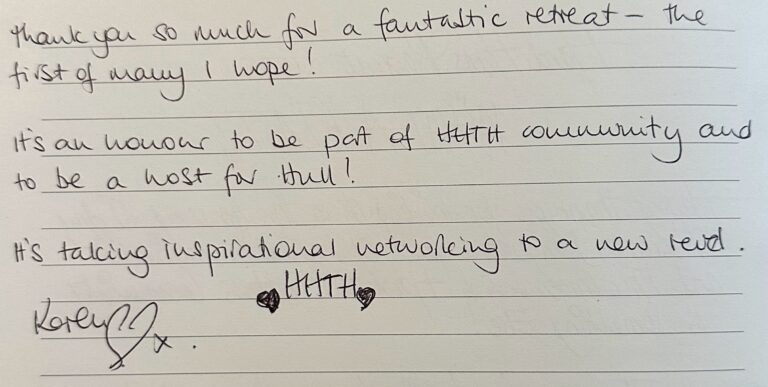 Thank you so much for a fantastic retreat – the
first of many I hope!
It's an honour to be part of HHTH community and
to be a host for Hull!
It's taking inspirational networking to a new level.
♥HHTH♥
Karen ♡x.